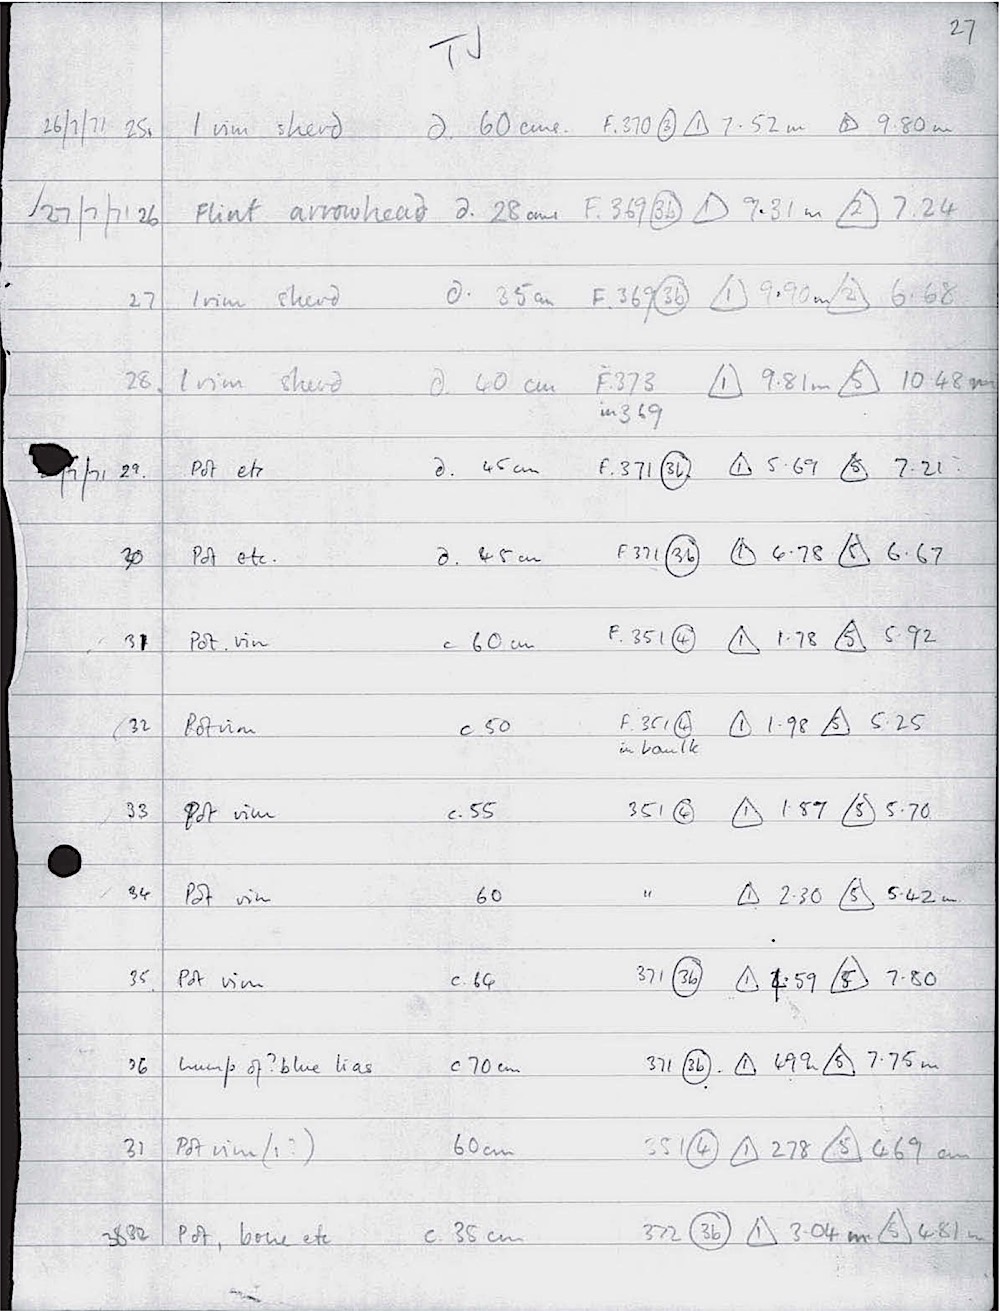 27
TJ
26/7/71 25. 1 rim sherd d. 60 cms. F.370 (3) △1 7.52 m △5 9.80 m
27/7/71 26 Flint arrowhead d. 28 cms F.369 (3b) △1 9.31 m △2 7.24
27 1 rim sherd d. 35 cm F.369 (3b) △1 9.90 m △2 6.68
28. 1 rim sherd d. 40 cm F.373 △1 9.81m △5 10.48 m
in 369
/7/71 29. Pot etc d. 45 cm F.371 (3b) △1 5.69 △5 7.21
30 Pot etc. d. 45 cm F371 (3b) △1 6.78 △5 6.67
31 Pot rim c 60 cm F.351 (4) △1 1.78 △5 5.92
32 Pot rim c.50 F.351 (4) △1 1.98 △5 5.25
in baulk
33 Pot rim c.55 351 (4) △1 1.87 △5 5.70
34 Pot rim 60 " △1 2.30 △5 5.42 m
35. Pot rim c.64 371 (3b) △1 .59 △5 7.80
36 Lump of ? blue lias c 70 cm 371 (3b). △1 △5 7.75 m
37 Pot rim (1?) 60 cm 351 (4) △1 278 △5 469 cm
38 Pot, bone etc c. 35 cm 372 (3b) △1 3.04 m △5 4.81 m